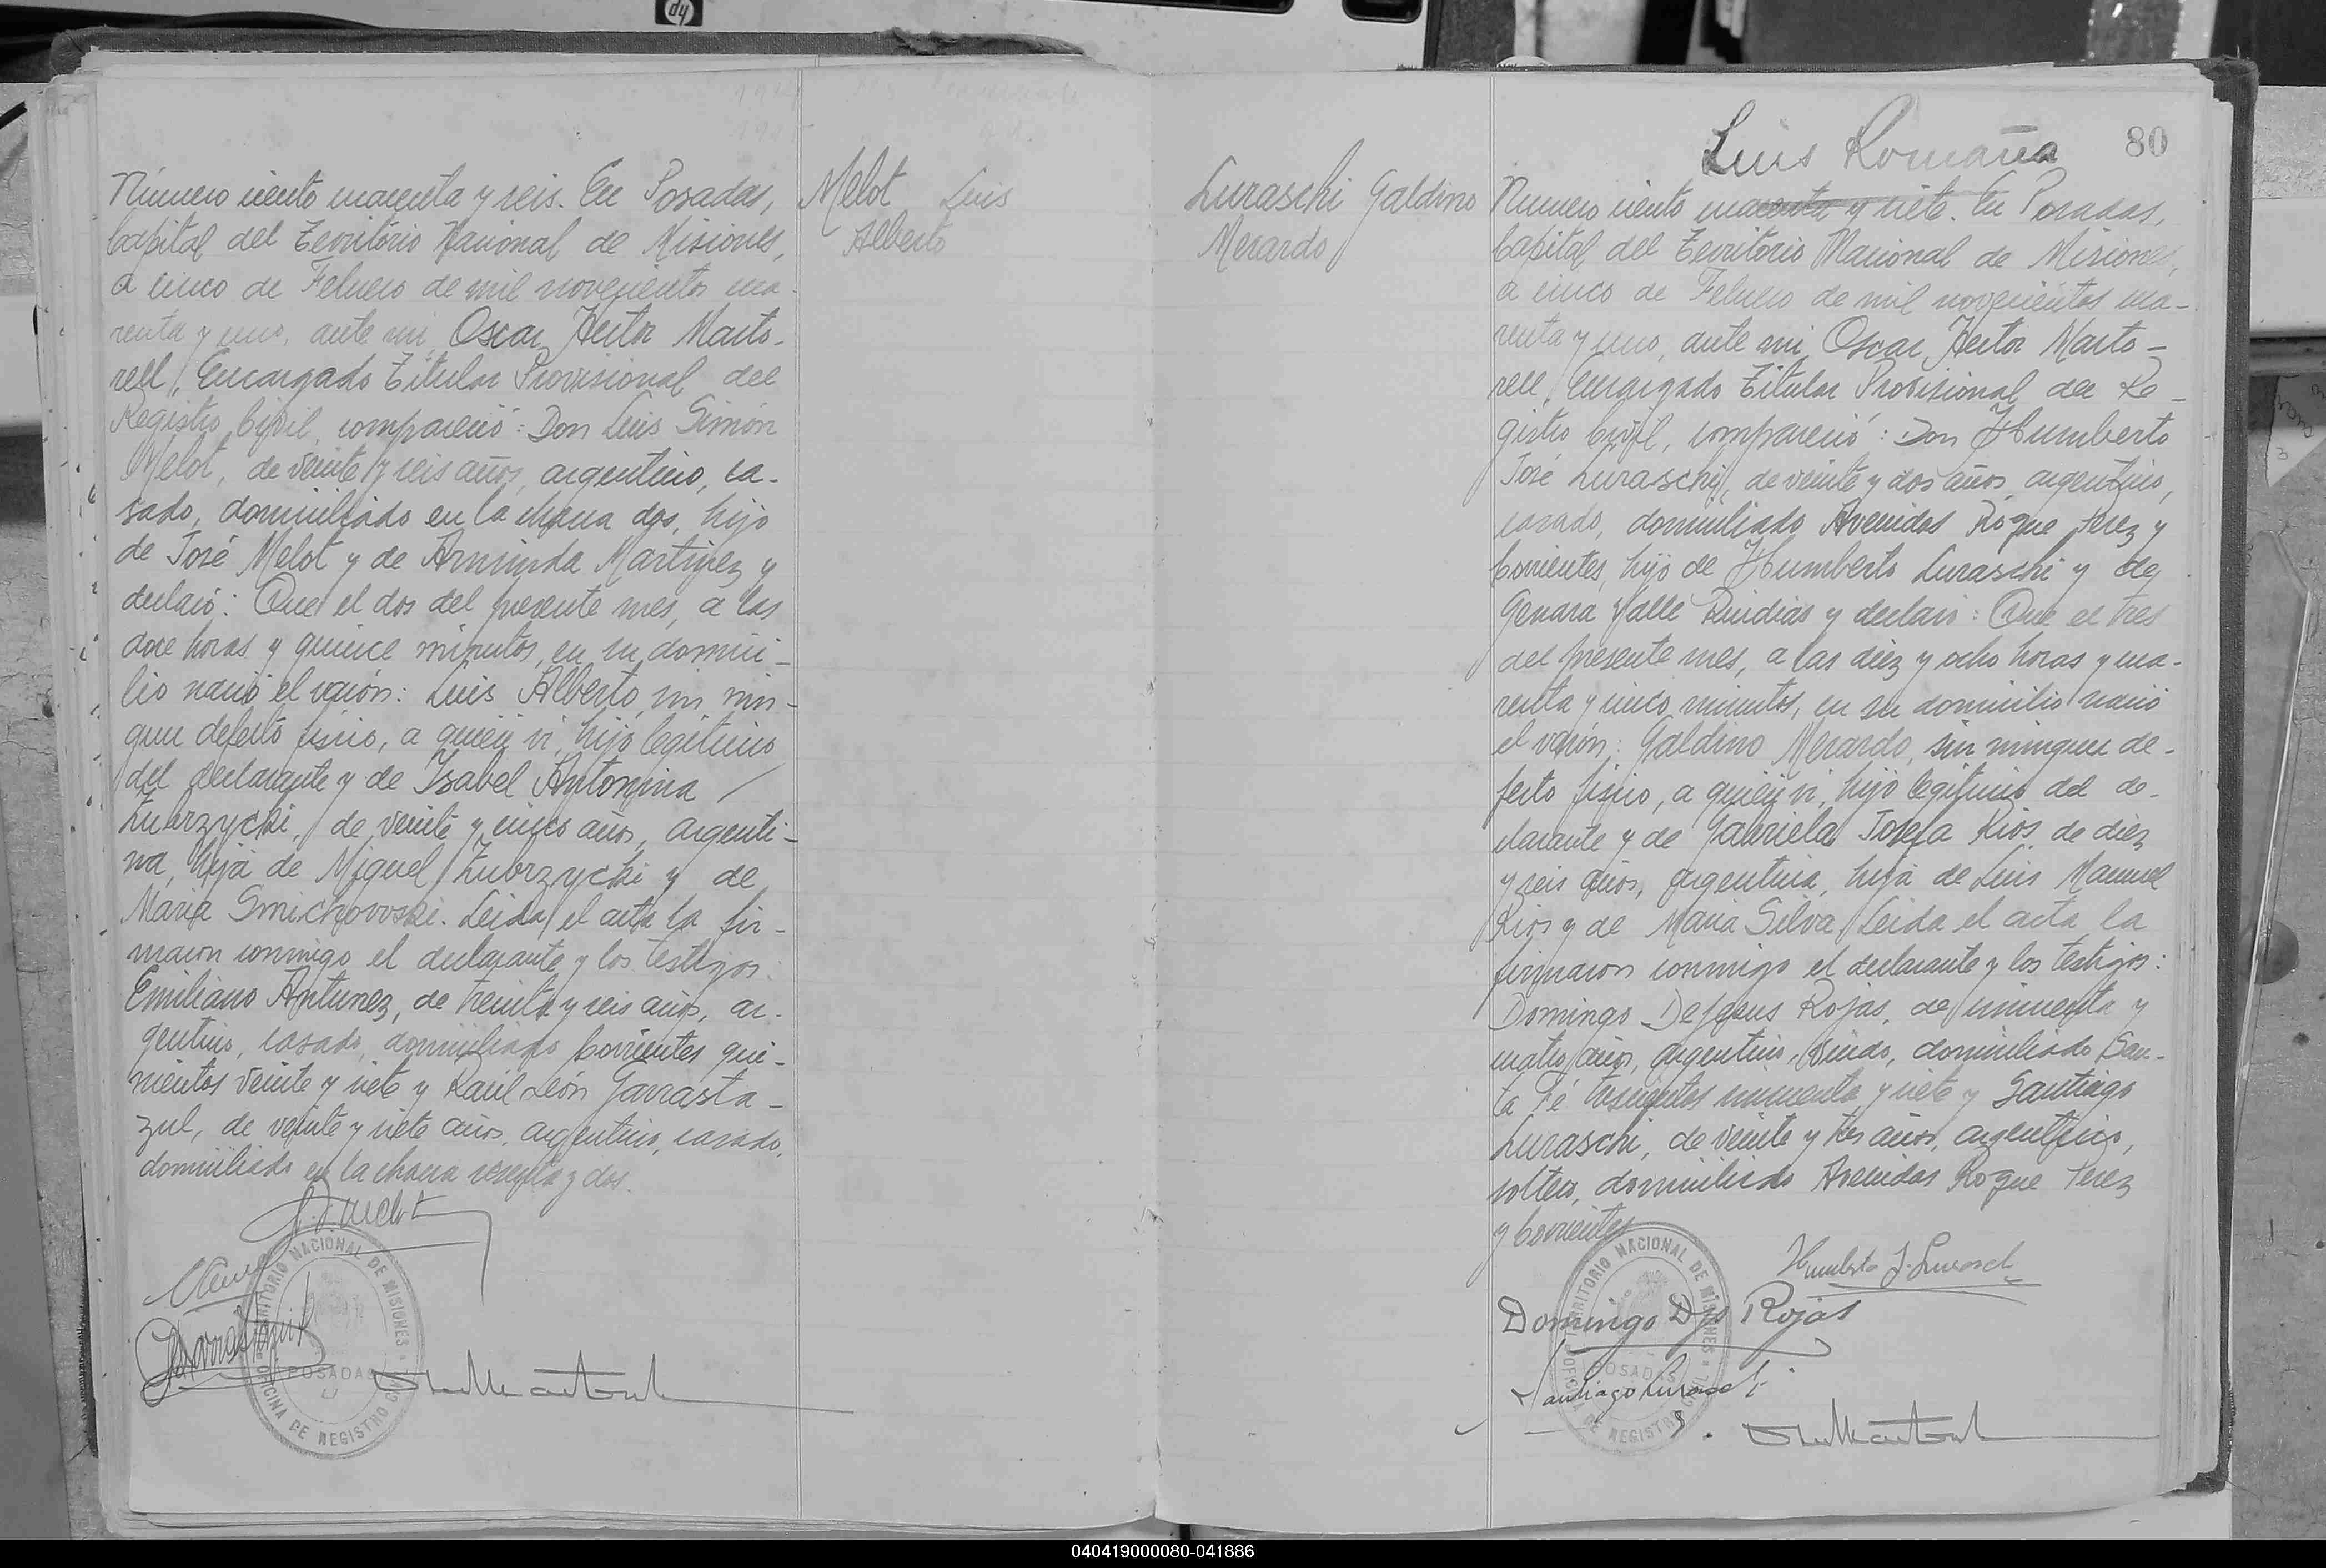 Número ciento cuarenta y seis. En Posadas,
Capital del Territorio Nacional de Misiones,
a cinco de Febrero de mil novecientos cua-
renta y uno, ante mi Oscar Hector Marto-
rell, Encargado Titular Provisional del
Registro Civil, compareció: Don Luis Simón
Melot, de veinte y seis años, argentino, ca-
sado, domiciliado en la chacra dos, hijo
de José Melot y de Arminda Martinez y
declaró: Que el dos del presente mes, a las
doce horas y quince minutos, en su domici-
lio nació el varón: Luis Alberto, sin nin-
gun defecto fisico, a quien vi, hijo legitimo
del declarante y de Ysabel Antonina /
Zubrzycki, de veinte y cinco años, argenti-
na, hija de Miguel Zubrzycki y de
Maria Smichovoski. Leida el acta la fir-
maron conmigo el declarante y los testigos:
Emiliano Antunez, de treinta y seis años, ar-
gentino, casado, domiciliado Corrientes qui-
nientos veinte y siete y Raúl León Garrasta-
zul, de veinte y siete años, argentino, casado,
domiciliado en la chacra sesenta y dos.
Melot Luis
Alberto
TERRITORIO NACIONAL DE MISIONES
POSADAS
OFICINA DE REGISTRO CIVIL
Luis Romaña
80
Luraschi Galdino
Merardo
Número ciento cuarenta y siete. En Posadas,
Capital del Territorio Nacional de Misiones,
a cinco de Febrero de mil novecientos cua-
renta y uno, ante mi Oscar Hector Marto-
rell, Encargado Titular Provisional del Re-
gistro Civil, compareció: Don Humberto
José Luraschi, de veinte y dos años, argentino,
casado, domiciliado Avenidas Roque Perez y
Corrientes, hijo de Humberto Luraschi y de
Genara Valle Ruidias y declaró: Que el tres
del presente mes, a las diez y ocho horas y cua-
renta y cinco minutos, en su domicilio nació
el varón: Galdino Merardo, sin ningun de-
fecto fisico, a quien vi, hijo legitimo del de-
clarante y de Gabriela Josefa Rios, de diez
y seis años, argentina, hija de Luis Manuel
Rios y de Maria Silva. Leida el acta la
firmaron conmigo el declarante y los testigos:
Domingo DeJesus Rojas, de cincuenta y
cuatro años, argentino, viudo, domiciliado San-
ta Fé trescientos cincuenta y siete y Santiago
Luraschi, de veinte y tres años, argentino,
soltero, domiciliado Avenidas Roque Perez
y Corrientes
Humberto J. Luraschi
Domingo Djs Rojas
Santiago Luraschi
TERRITORIO NACIONAL DE MISIONES
POSADAS
OFICINA DE REGISTRO CIVIL
040419000080-041886